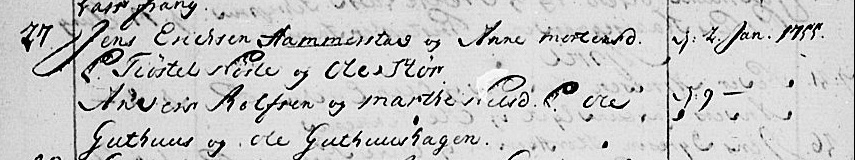 27. Jens Erichsen Hammerstad og Anne Mortensd. d: 2. Jan. 1755.
C. Tiöstel og Ole Stör.
Anders Rolfsen og Marthe Nilsd. C. Ole d: 9 — "
Guthuus og Ole Guthuushagen.